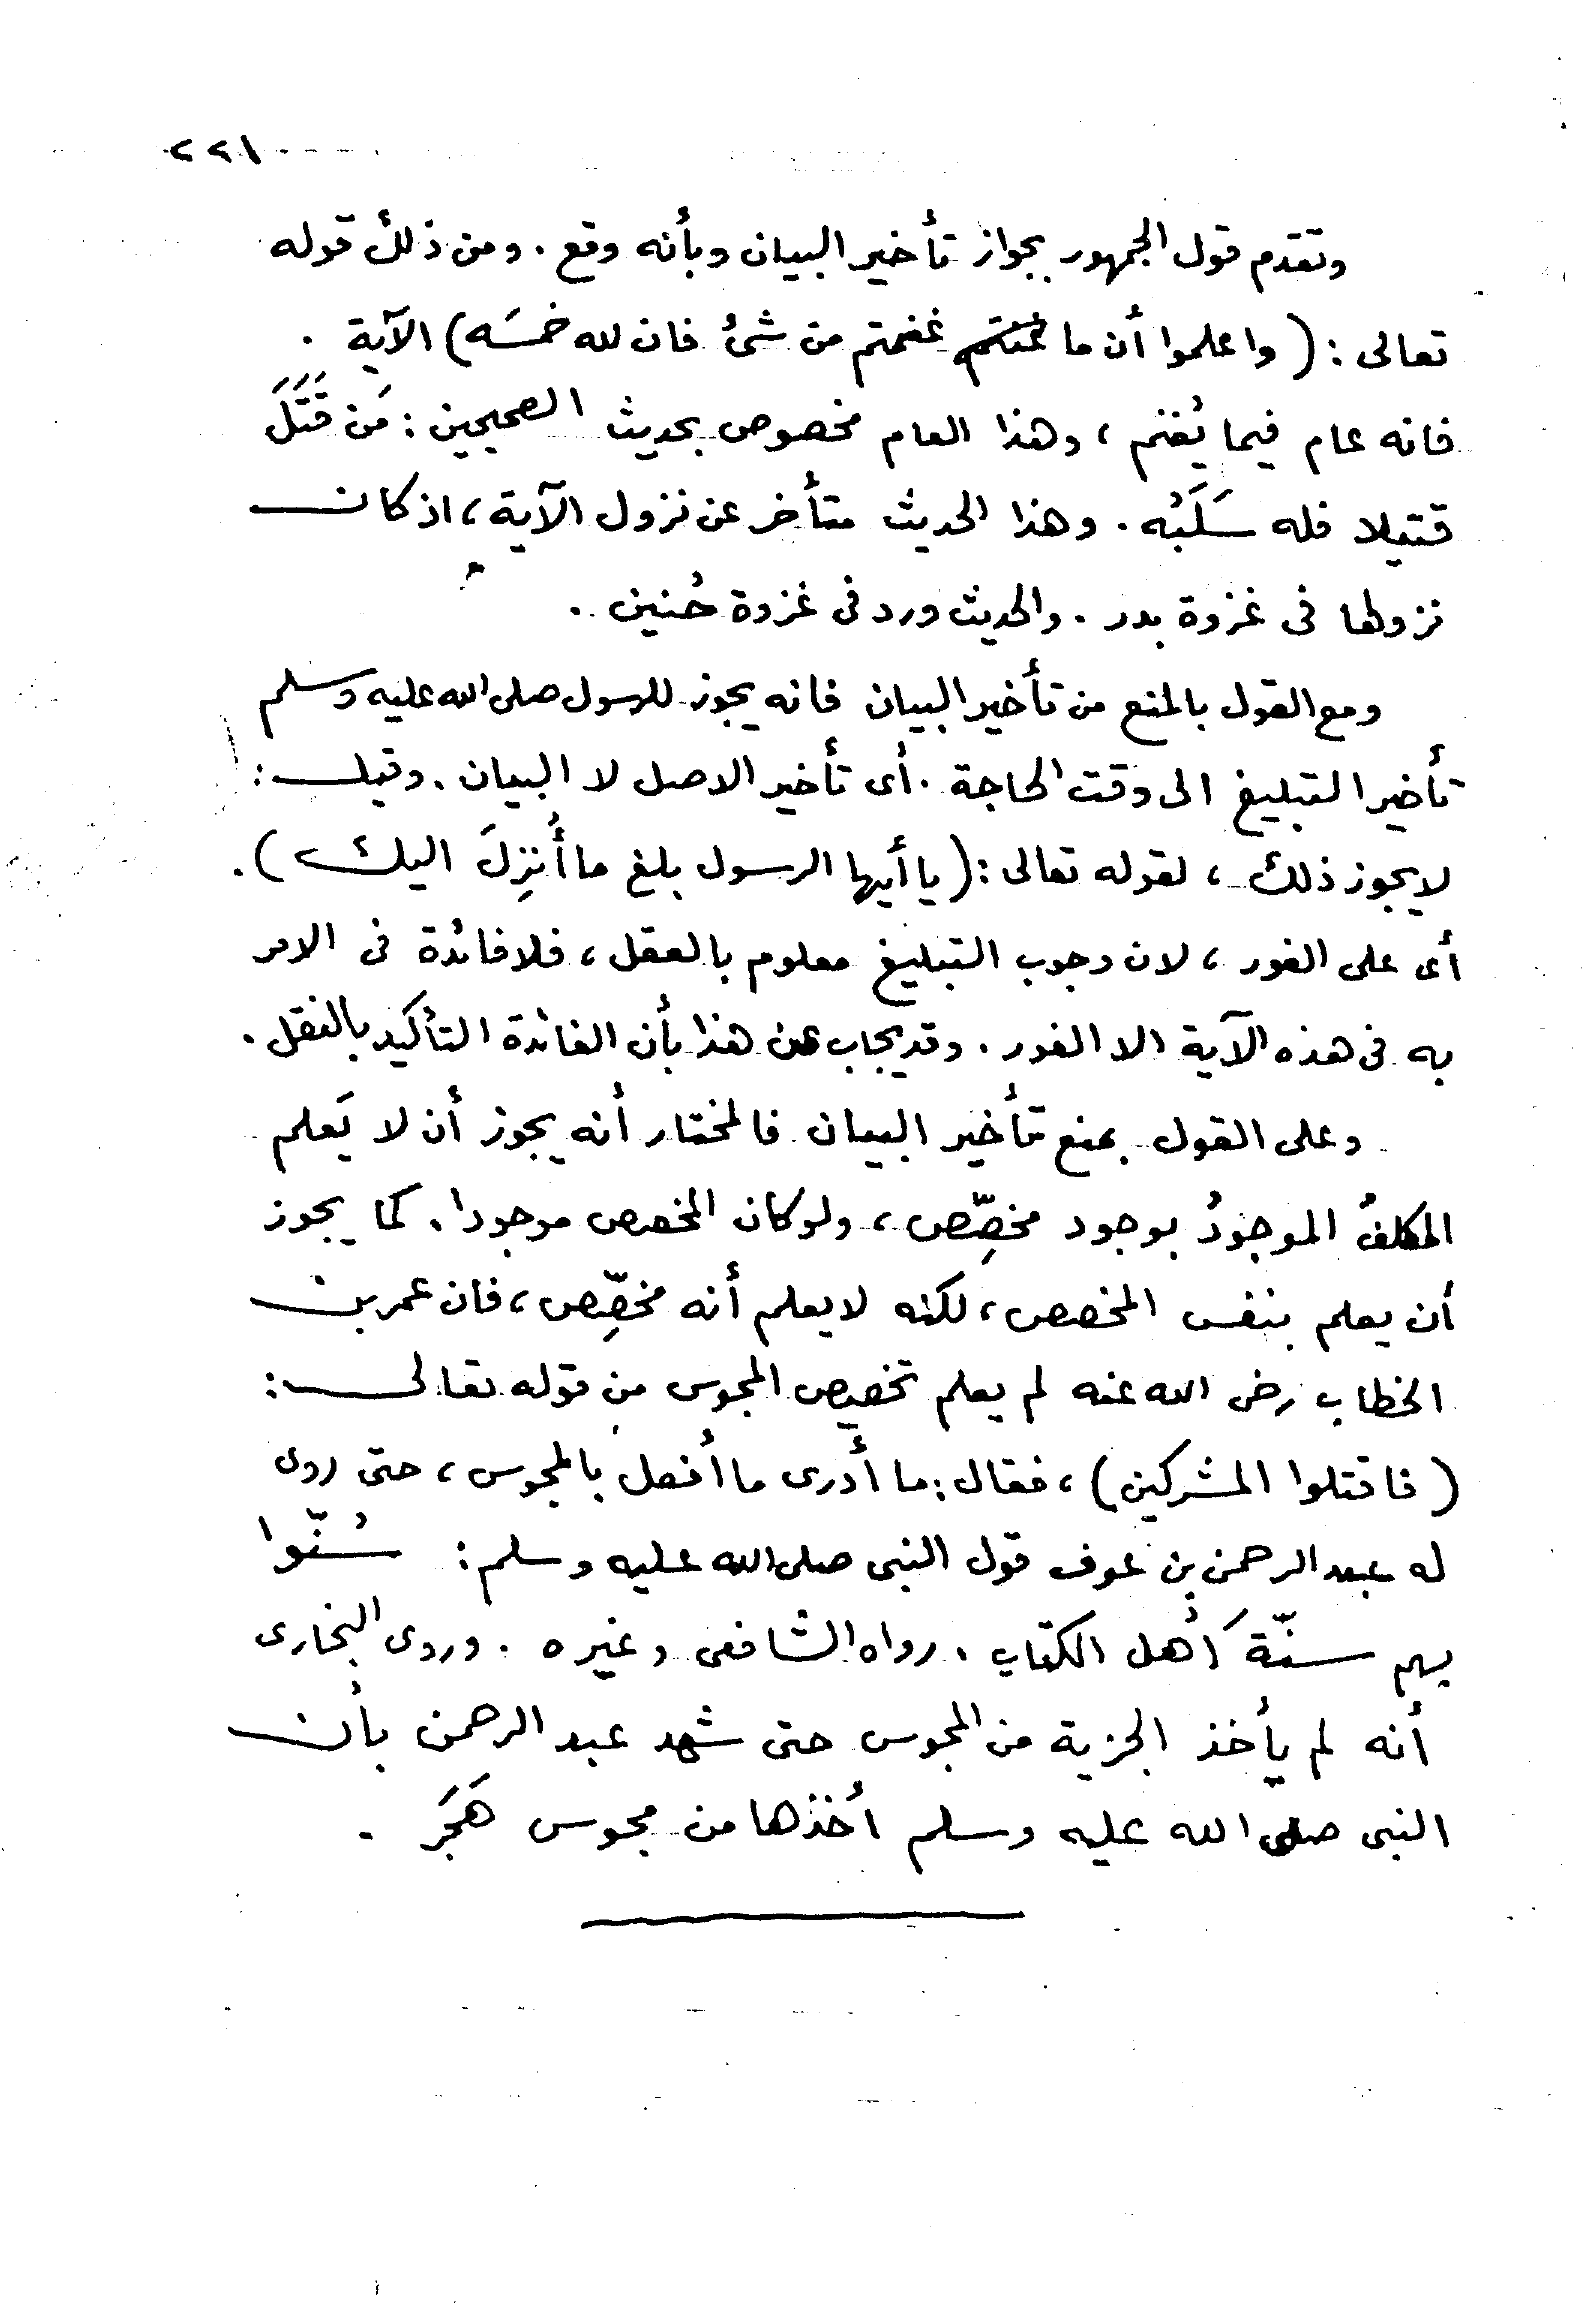 ٢٢١
وتقدم قول الجمهور بجواز تأخير البيان وبأنه وقع . ومن ذلك قوله
تعالى : ( واعلموا أن ما غنمتم من شئ فان لله خمسَه ) الآية .
فانه عام فيما يُغنم ، وهذا العام مخصوص بحديث الصحيحين : مَن قَتَلَ
قتيلا فله سَلَبُه . وهذا الحديث متأخر عن نزول الآية ، اذ كان
نزولها فى غزوة بدر . والحديث ورد فى غزوة حُنين .
ومع القول بالمنع من تأخير البيان فانه يجوز للرسول صلى الله عليه وسلم
تأخير التبليغ الى وقت الحاجة . أى تأخير الاصل لا البيان . وقيل :
لا يجوز ذلك ، لقوله تعالى : ( يا أيها الرسول بلغ ما أُنزِلَ اليك ) .
أى على الفور ، لان وجوب التبليغ معلوم بالعقل ، فلا فائدة فى الامر
به فى هذه الآية الا الفور . وقد يجاب عن هذا بأن الفائدة التأكيد بالنقل .
وعلى القول بمنع تأخير البيان فالمختار أنه يجوز أن لا يَعلم
المكلفُ الموجودُ بوجود مخصِّص ، ولو كان المخصص موجودا . كما يجوز
أن يعلم بنفس المخصص ، لكنه لا يعلم أنه مخصِّص ، فان عمر بن
الخطاب رضى الله عنه لم يعلم تخصيص المجوس من قوله تعالى :
( فاقتلوا المشركين ) ، فقال : ما أدرى ما أفعل بالمجوس ، حتى روى
له عبد الرحمن بن عوف قول النبى صلى الله عليه وسلم : سُنّوا
بهم سنّةَ أهل الكتاب . رواه الشافعى وغيره . وروى البخارى
أنه لم يأخذ الجزية من المجوس حتى شهد عبد الرحمن بأن
النبى صلى الله عليه وسلم أخذها من مجوس هَجَر .